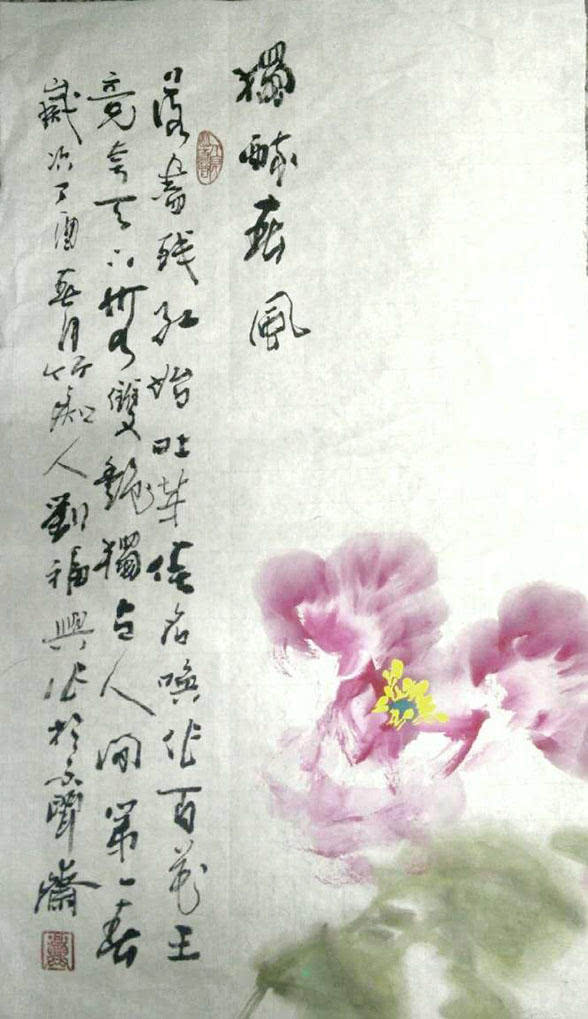 獨醉春風
落盡殘紅始吐芳佳名喚作百花王
竞夸天下無雙艷獨占人間第一春
歲次丁酉春月竹痴人劉福興作於不聞齋